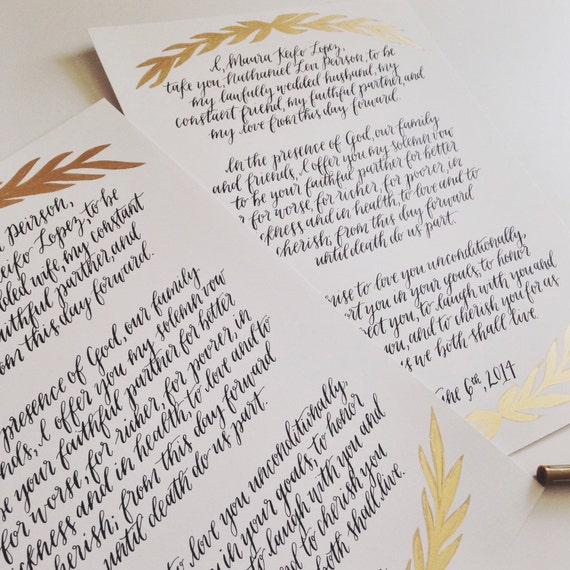 I, Maura Keifo Lopez,
take you, Nathaniel Levi Peirson, to be
my lawfully wedded husband, my
constant friend, my faithful partner and
my love from this day forward.
In the presence of God, our family
and friends, I offer you my solemn vow
to be your faithful partner for better
or for worse, for richer, for poorer, in
ckness and in health, to love and to
cherish, from this day forward
until death do us part.
ise to love you unconditionally,
rt you in your goals, to honor
ect you, to laugh with you and
ou, and to cherish you for as
as we both shall live.
une 6th, 2014
Peirson,
eifo Lopez, to be
dded wife, my constant
aithful partner and
om this day forward.
presence of God, our family
nds, I offer you my solemn vow
be your faithful partner for better
for worse, for richer, for poorer, in
ickness and in health, to love and to
cherish, from this day forward
until death do us part.
to love you unconditionally,
you in your goals, to honor
to laugh with you and
and to cherish you
both shall live.